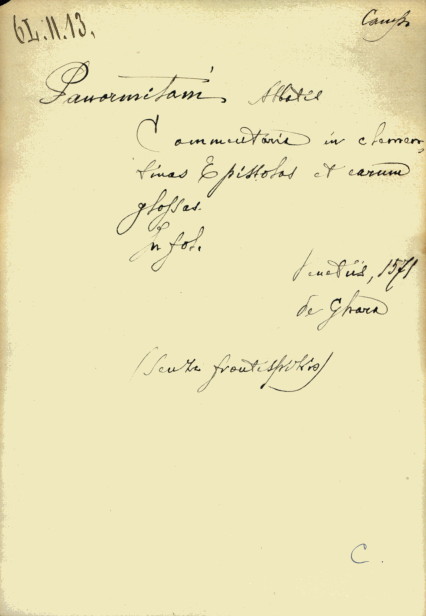 6L.II.13.
Panormitani Abbatis
Commentaria in clemen-
tinas Epistolas et earum
glossas.
In fol.
Venetiis, 1571
de Ghara
(Senza frontispizio)
C.